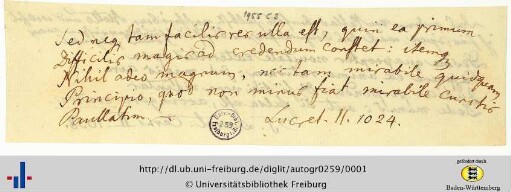 1955 C 2
Sed neq tam facilis res ulla est, quin ea primum
Difficilis magis ad credendum constet: itemq
Nihil adeo magnum, nec tam mirabile quicquam
Principio, quod non minus fiat mirabile cunctis
Paullatim.
Lucret. II. 1024.
http://dl.ub.uni-freiburg.de/diglit/autogr0259/0001
© Universitätsbibliothek Freiburg
gefördert durch
Baden-Württemberg